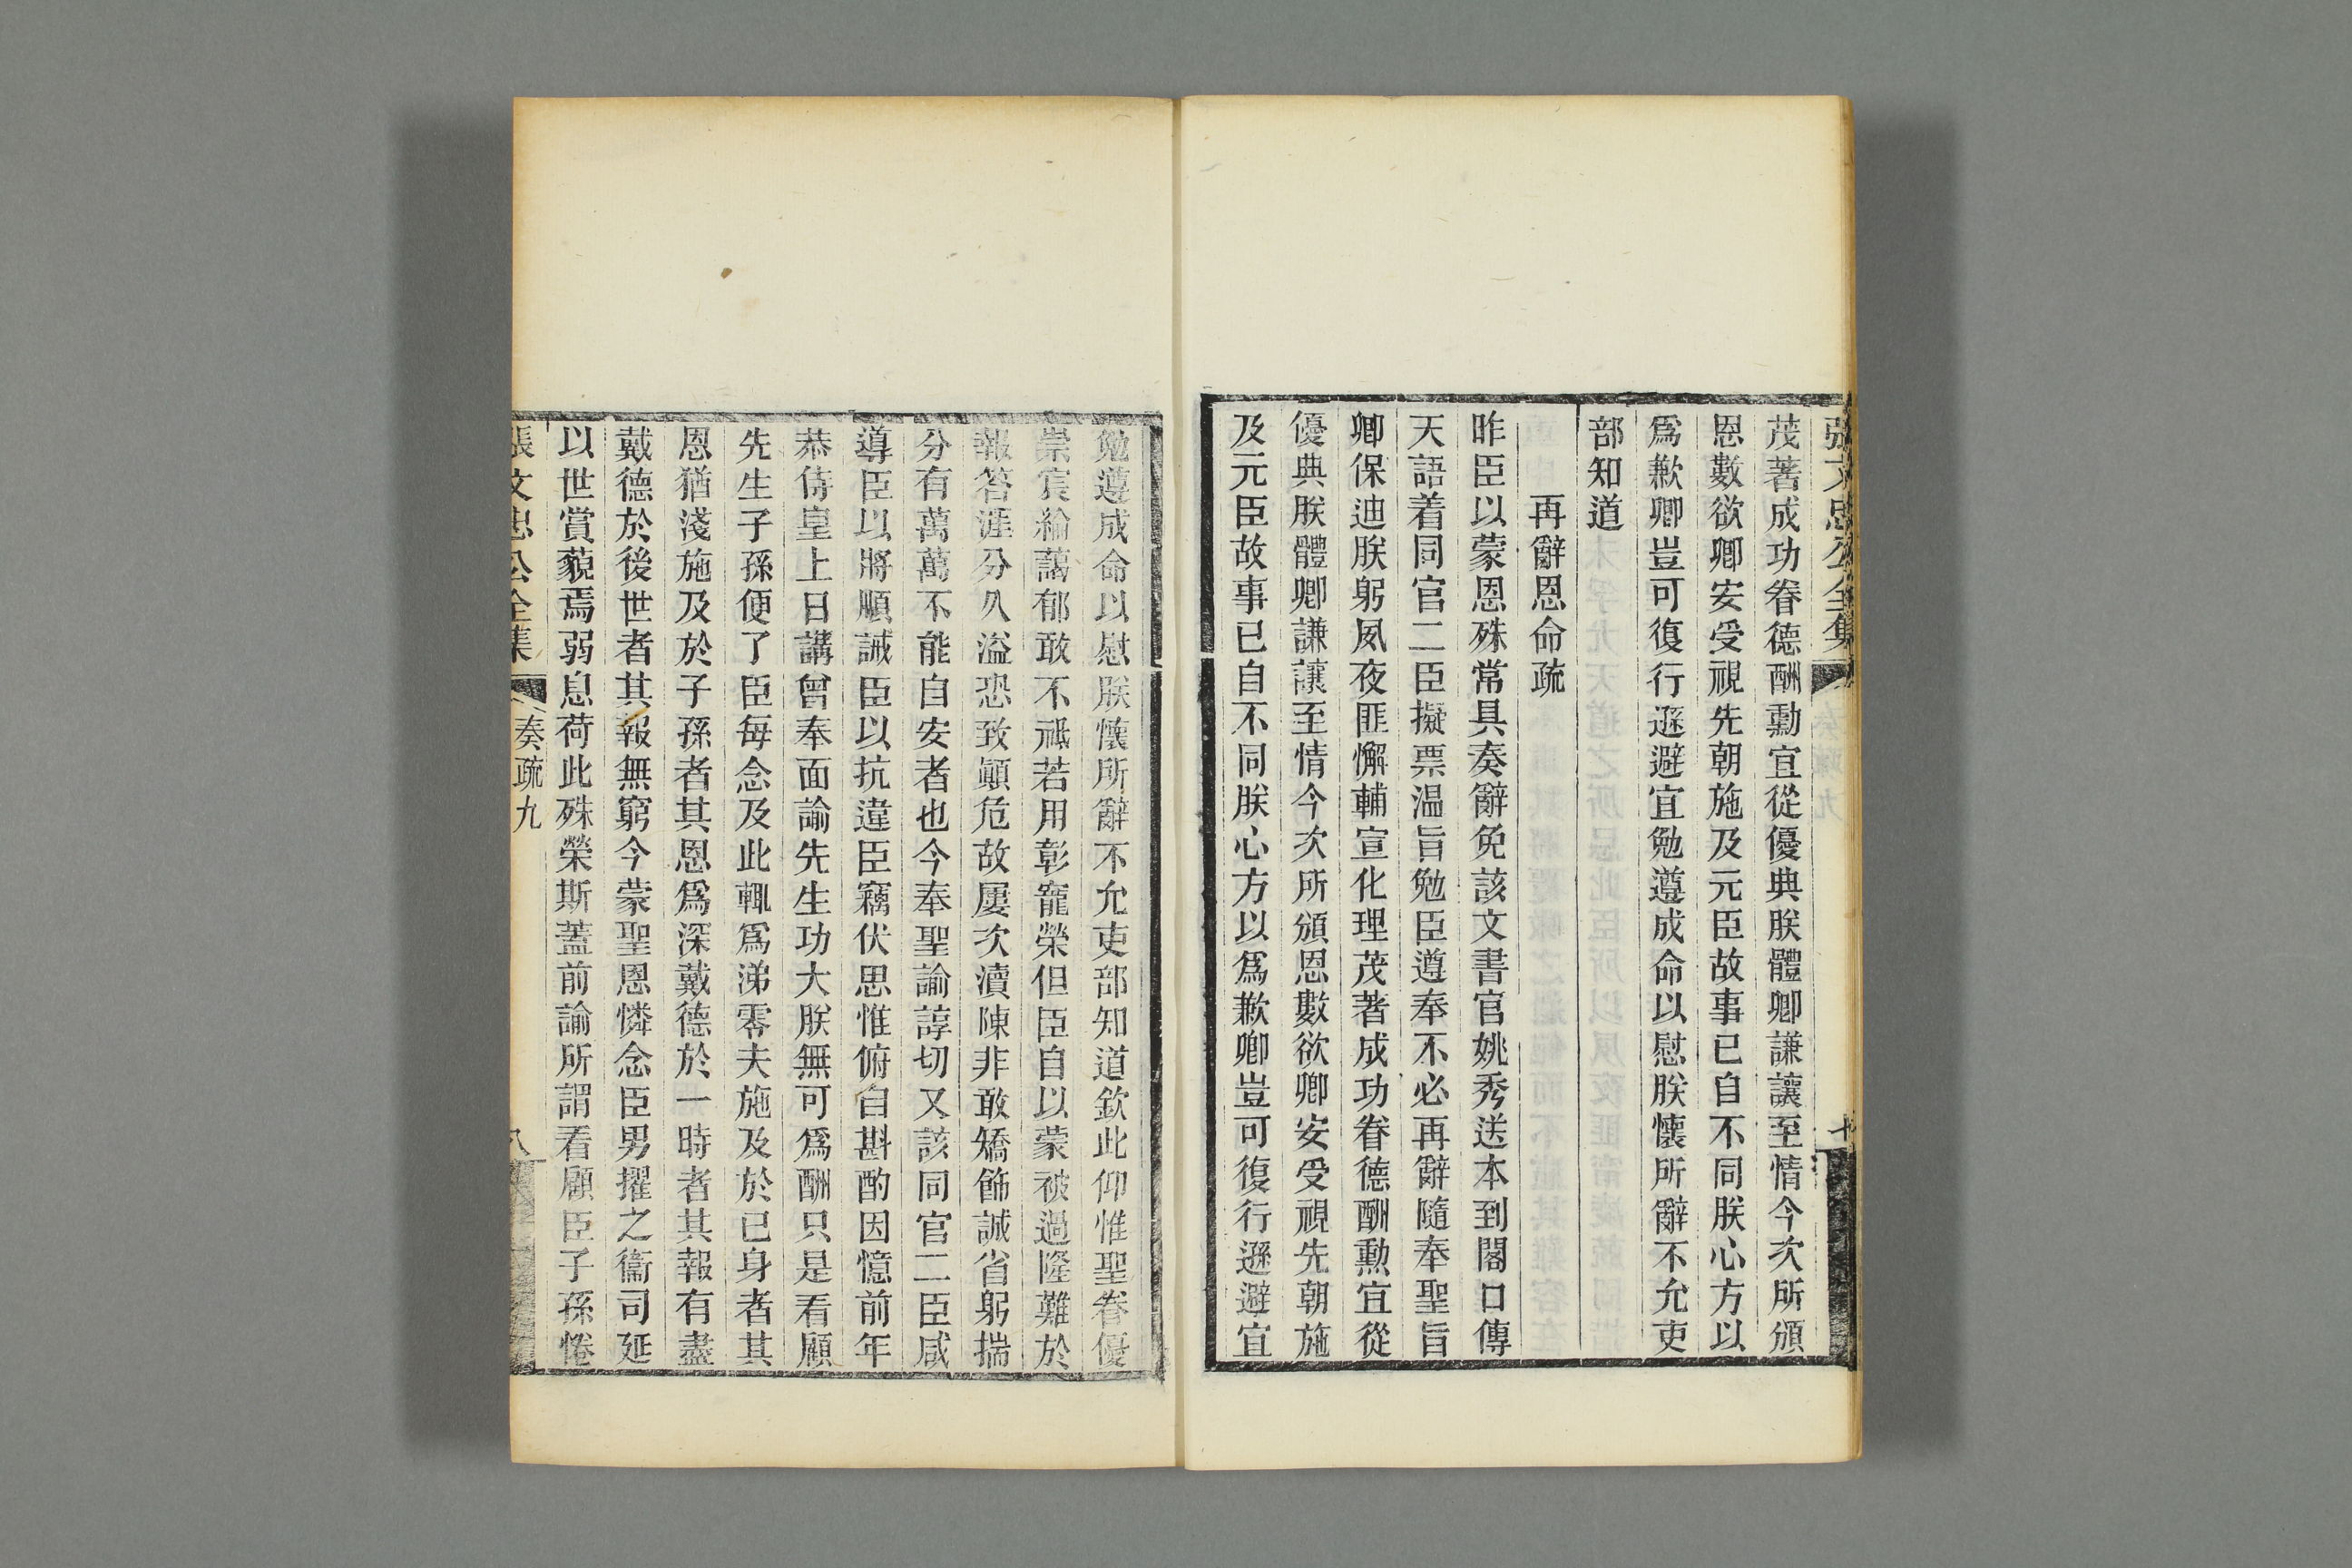 張文忠公全集
奏疏九
七
茂著成功眷德酬勳宜從優典朕體卿謙讓至情今次所頒
恩數欲卿安受視先朝施及元臣故事已自不同朕心方以
爲歉卿豈可復行遜避宜勉遵成命以慰朕懷所辭不允吏
部知道
再辭恩命疏
昨臣以蒙恩殊常具奏辭免該文書官姚秀送本到閣口傳
天語着同官二臣擬票温旨勉臣遵奉不必再辭隨奉聖旨
卿保迪朕躬夙夜匪懈輔宣化理茂著成功眷德酬勳宜從
優典朕體卿謙讓至情今次所頒恩數欲卿安受視先朝施
及元臣故事已自不同朕心方以爲歉卿豈可復行遜避宜
勉遵成命以慰朕懷所辭不允吏部知道欽此仰惟聖眷優
崇宸綸藹郁敢不祗若用彰寵榮但臣自以蒙被過隆難於
報答涯分久溢恐致顚危故屢次瀆陳非敢矯飾誠省躬揣
分有萬萬不能自安者也今奉聖諭諄切又該同官二臣咸
導臣以將順誡臣以抗違臣竊伏思惟俯自斟酌因憶前年
恭侍皇上日講曾奉面諭先生功大朕無可爲酬只是看顧
先生子孫便了臣每念及此輒爲涕零夫施及於已身者其
恩猶淺施及於子孫者其恩爲深戴德於一時者其報有盡
戴德於後世者其報無窮今蒙聖恩憐念臣男擢之衞司延
以世賞藐焉弱息荷此殊榮斯蓋前諭所謂看顧臣子孫惓
張文忠公全集
奏疏九
八